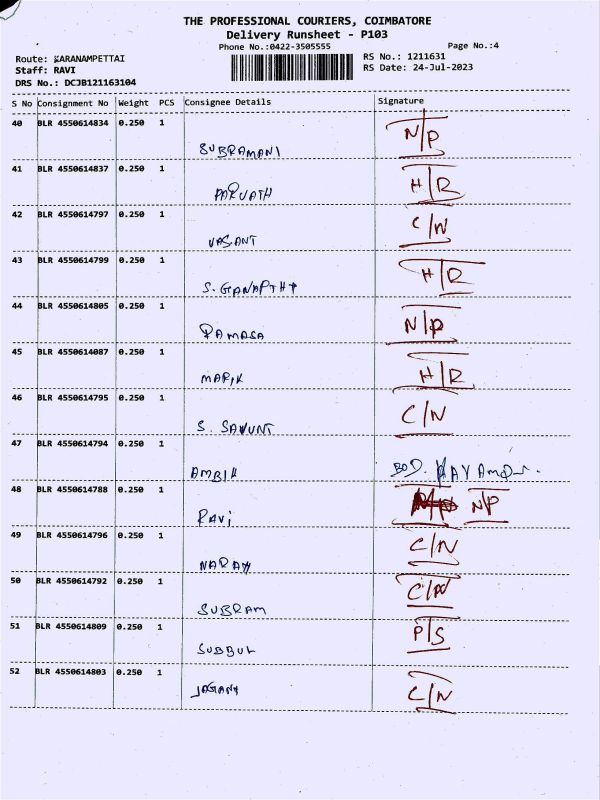 THE PROFESSIONAL COURIERS, COIMBATORE
Delivery Runsheet - P103
Phone No.:0422-3505555
Page No.:4
Route: KARANAMPETTAI
RS No.: 1211631
Staff: RAVI
RS Date: 24-Jul-2023
DRS No.: DCJB121163104
S No Consignment No Weight PCS Consignee Details Signature
40 BLR 4550614834 0.250 1
SUBRAMANI N/P
41 BLR 4550614837 0.250 1
PARVATH H/R
42 BLR 4550614797 0.250 1
VASANT C/N
43 BLR 4550614799 0.250 1
S. GANAPTHI H/R
44 BLR 4550614805 0.250 1
RAMASA N/P
45 BLR 4550614087 0.250 1
MARIK H/R
46 BLR 4550614795 0.250 1
S. C/N
47 BLR 4550614794 0.250 1
AMBIK BOD.
48 BLR 4550614788 0.250 1
RAVi N/P
49 BLR 4550614796 0.250 1
NARAY C/N
50 BLR 4550614792 0.250 1
SUBRAM C/N
51 BLR 4550614809 0.250 1
SUBBUL P/S
52 BLR 4550614803 0.250 1
JAGANN C/N